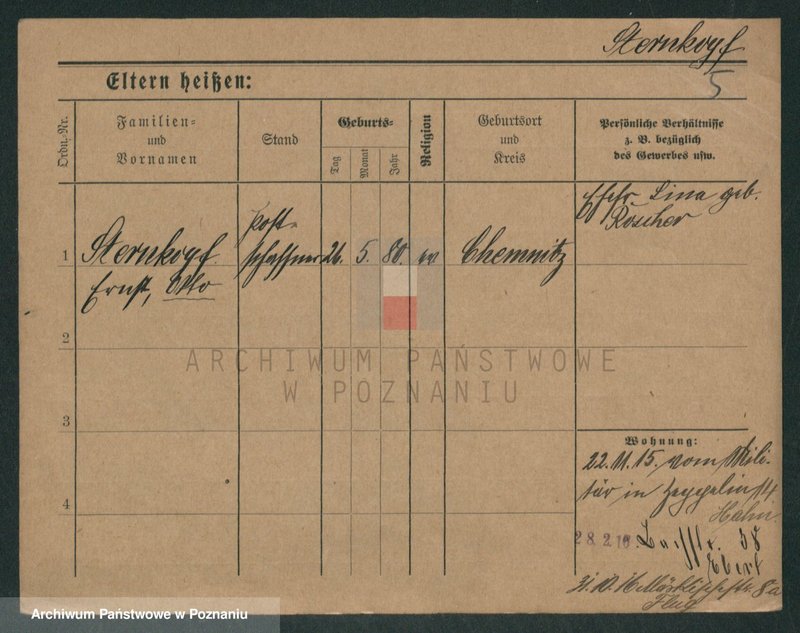 Sternkopf
5
Eltern heißen:
Ordn.-Nr.
Familien-
und
Vornamen
Stand
Geburts-
Tag
Monat
Jahr
Religion
Geburtsort
und
Kreis
Persönliche Verhältnisse
z. B. bezüglich
des Gewerbes usw.
1
Sternkopf
Ernst, Otto
Post-
schaffner
26.
5.
80.
ev
Chemnitz
Ehefr. Lina geb.
Roscher
2
3
4
ARCHIWUM PAŃSTWOWE
W POZNANIU
Wohnung:
22.11.15. vom Mili-
tär in Zeppelinstr
Hahn
28.2.16. 38
Ebert
8a
Flug
Archiwum Państwowe w Poznaniu